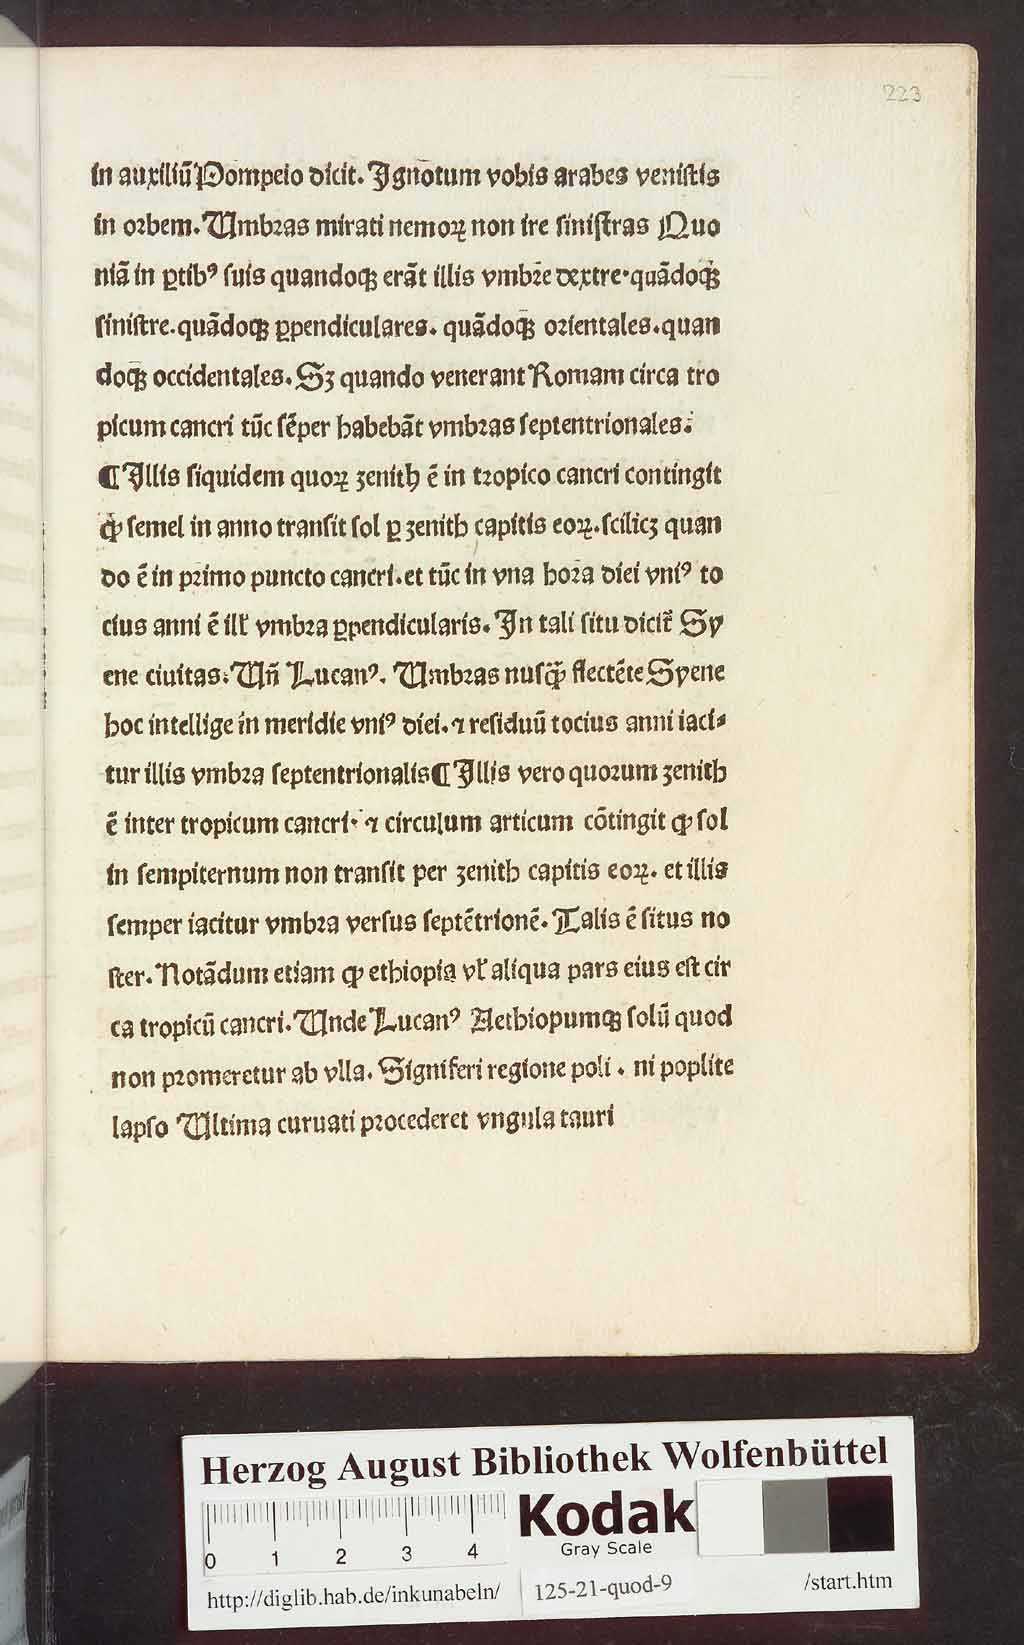 223
in auxiliū Pompeio dicit. Ignotum vobis arabes venistis
in orbem. Umbras mirati nemoꝝ non ire sinistras Quo
niā in ꝑtibꝰ suis quandoqꝫ erāt illis vmbre dextre. quādoqꝫ
sinistre. quādoqꝫ ꝑpendiculares. quādoqꝫ orientales. quan
doqꝫ occidentales. Sꝫ quando venerant Romam circa tro
picum cancri tūc sēper habebāt vmbras septentrionales.
¶ Illis siquidem quoꝝ zenith ē in tropico cancri contingit
ꝙ semel in anno transit sol ꝑ zenith capitis eoꝝ. scilicꝫ quan
do ē in primo puncto cancri. et tūc in vna hora diei vniꝰ to
cius anni ē illꝭ vmbra ꝑpendicularis. In tali situ dicit᷑ Sy
ene ciuitas. Vn̄ Lucanꝰ. Umbras nusꝙ̄ flectēte Syene
hoc intellige in meridie vniꝰ diei. ⁊ residuū tocius anni iaci-
tur illis vmbra septentrionalis ¶ Illis vero quorum zenith
ē inter tropicum cancri. ⁊ circulum articum cōtingit ꝙ sol
in sempiternum non transit per zenith capitis eoꝝ. et illis
semper iacitur vmbra versus septētrionē. Talis ē situs no
ster. Notādum etiam ꝙ ethiopia vꝉ aliqua pars eius est cir
ca tropicū cancri. Unde Lucanꝰ Aethiopumqꝫ solū quod
non promeretur ab vlla. Signiferi regione poli. ni poplite
lapso Ultima curuati procederet vngula tauri
Herzog August Bibliothek Wolfenbüttel
0 1 2 3 4
Kodak
Gray Scale
http://diglib.hab.de/inkunabeln/ 125-21-quod-9 /start.htm